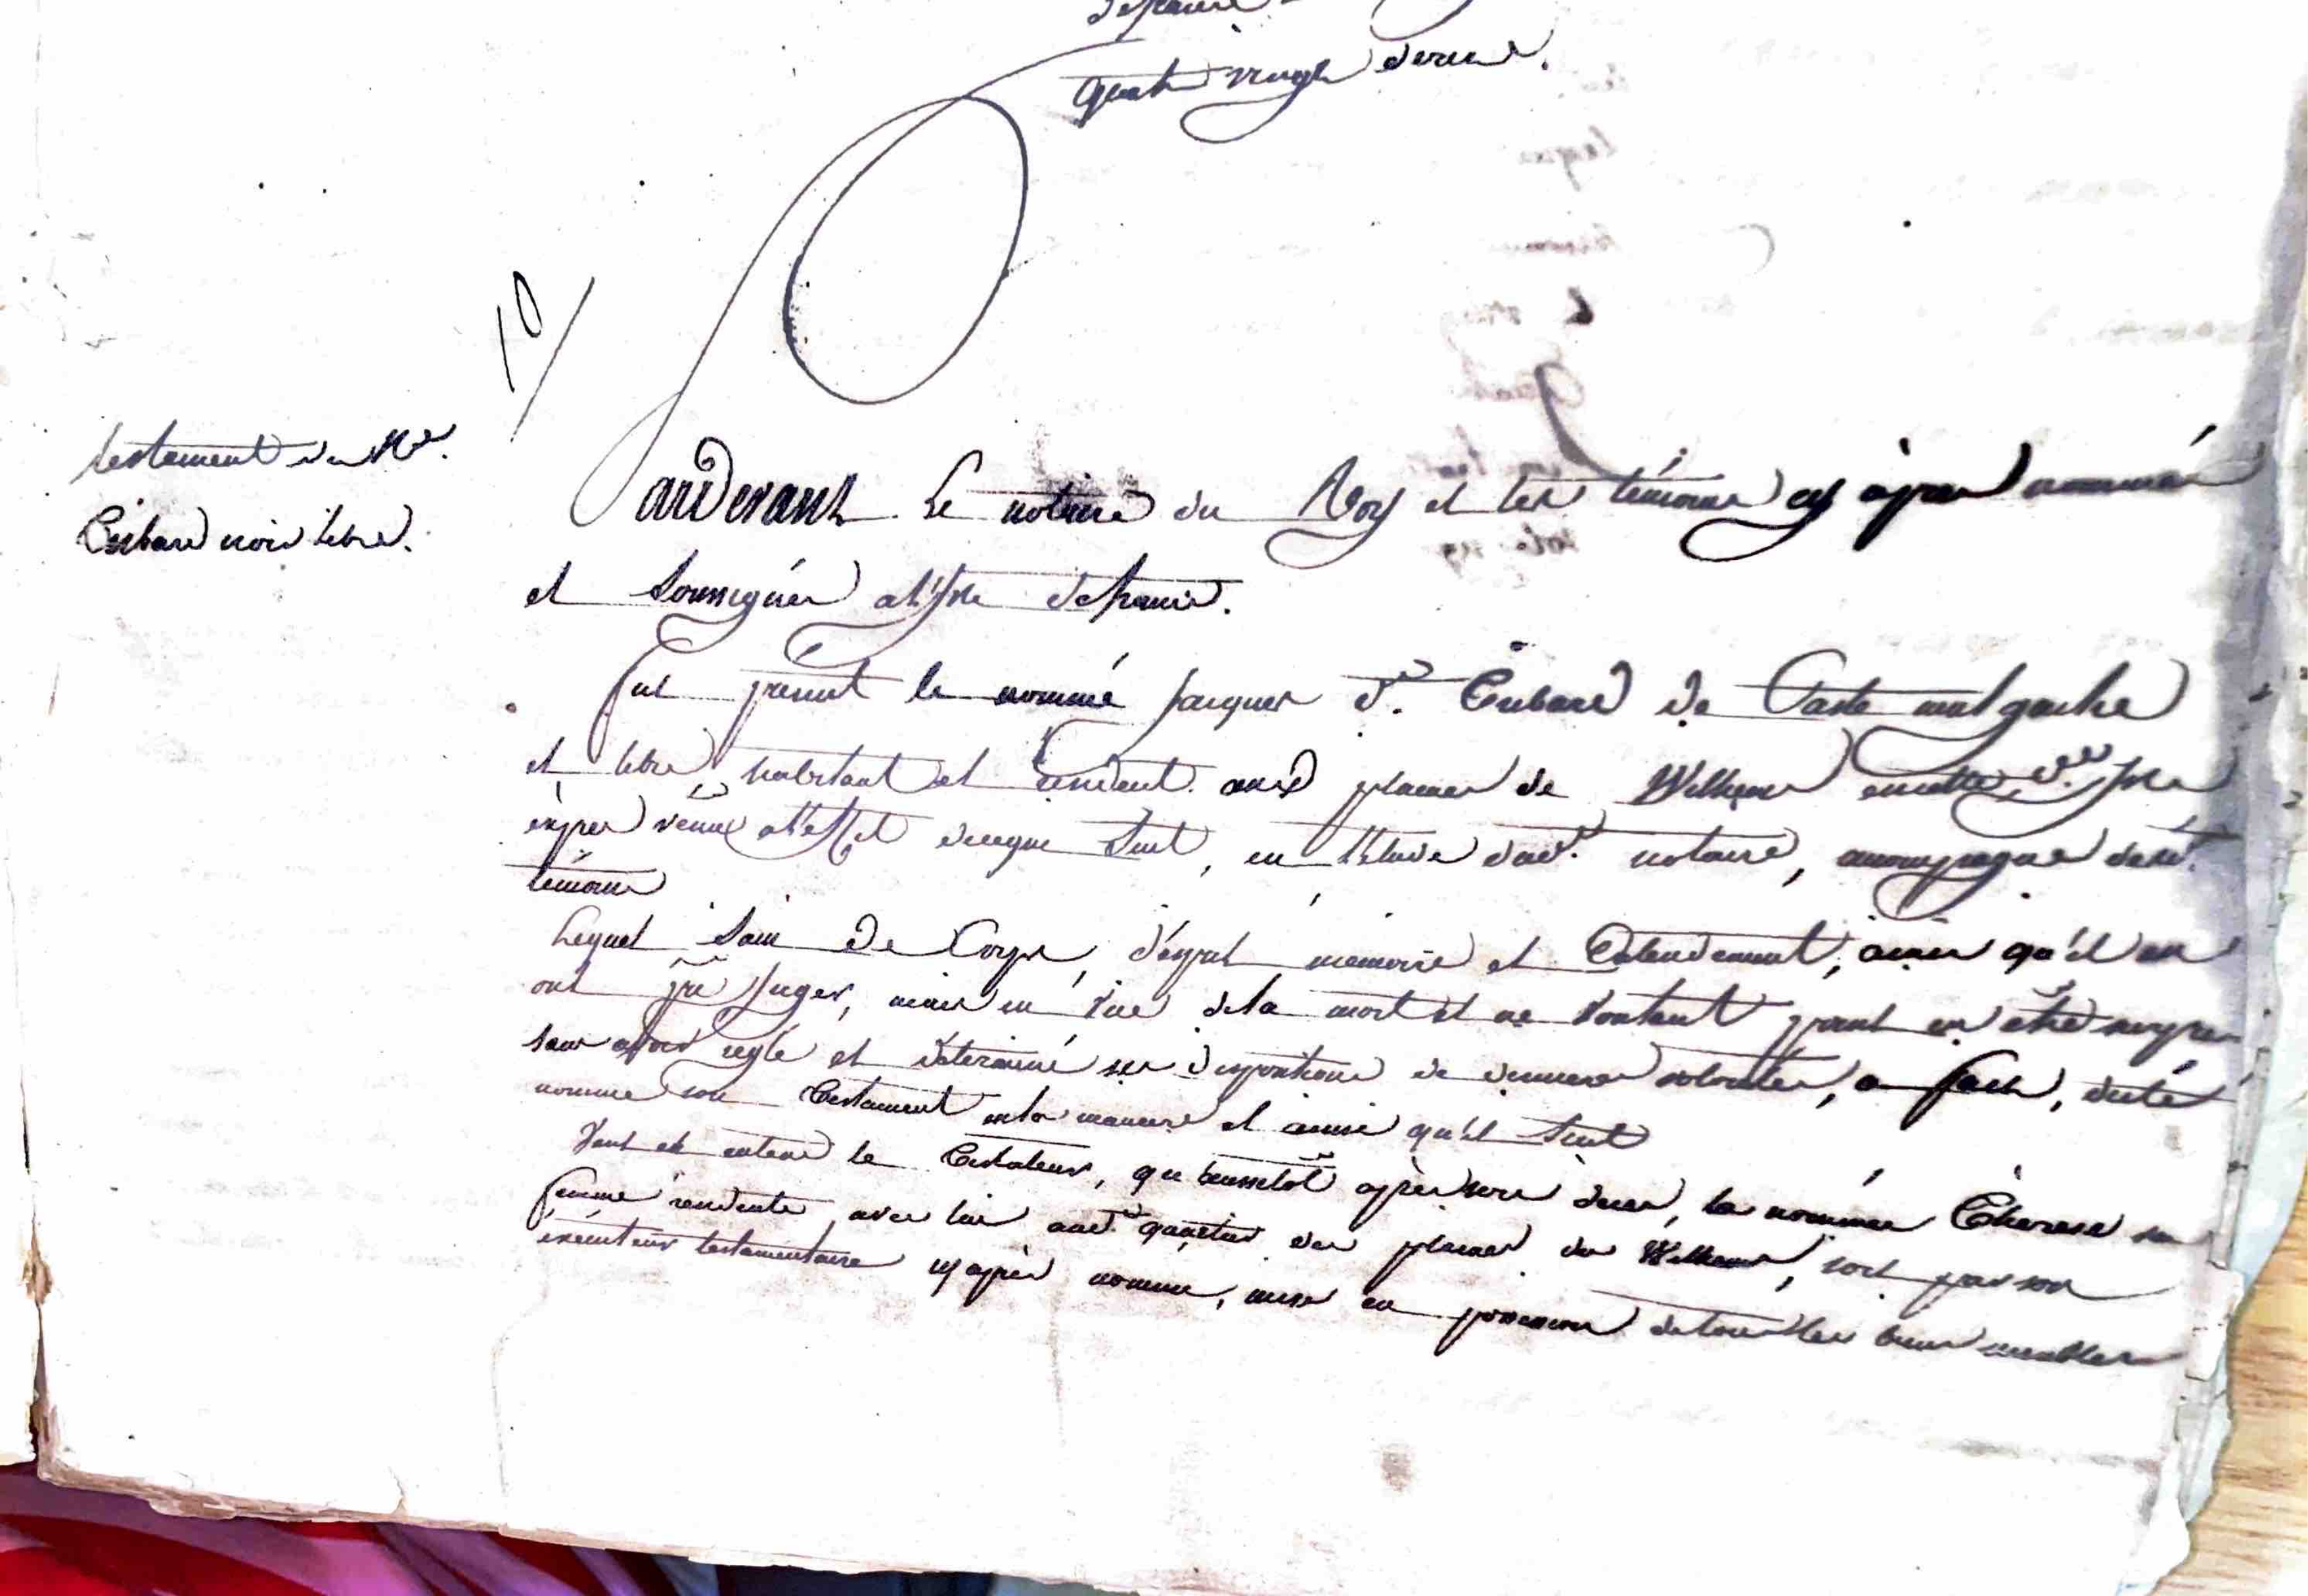 quatre vingt
10/
testament du Né.
noir libre.
Pardevant Le notaire du Roy et les témoins cy après nommés
et soussignés a l'Isle de france.
fut present le nommé jacques d. de Caste malgache
et libre, habitant et résident aux plaines de Wilhems en cette d. Isle
exprès venu a l'effet de ce que suit, en l'Etude dud. notaire, accompagné desd.
témoins
Lequel Sain De Corps, d'esprit memoire et Entendement, ainsi qu'il en
ont pu juger, mais en vue de la mort et ne voulant point en etre surpris
sans avoir reglé et determiné ses dispositions de dernieres volontés, a fait, dicté
nommé son Testament en la maniere et ainsi qu'il suit
Veut et entend le Testateur, qu'aussitot après son deces, la nommée Therese sa
femme residente avec lui aud. quartier des plaines de Wilhems, soit par son
executeur testamentaire cy après nommé, mise en possession de tous les biens meubles